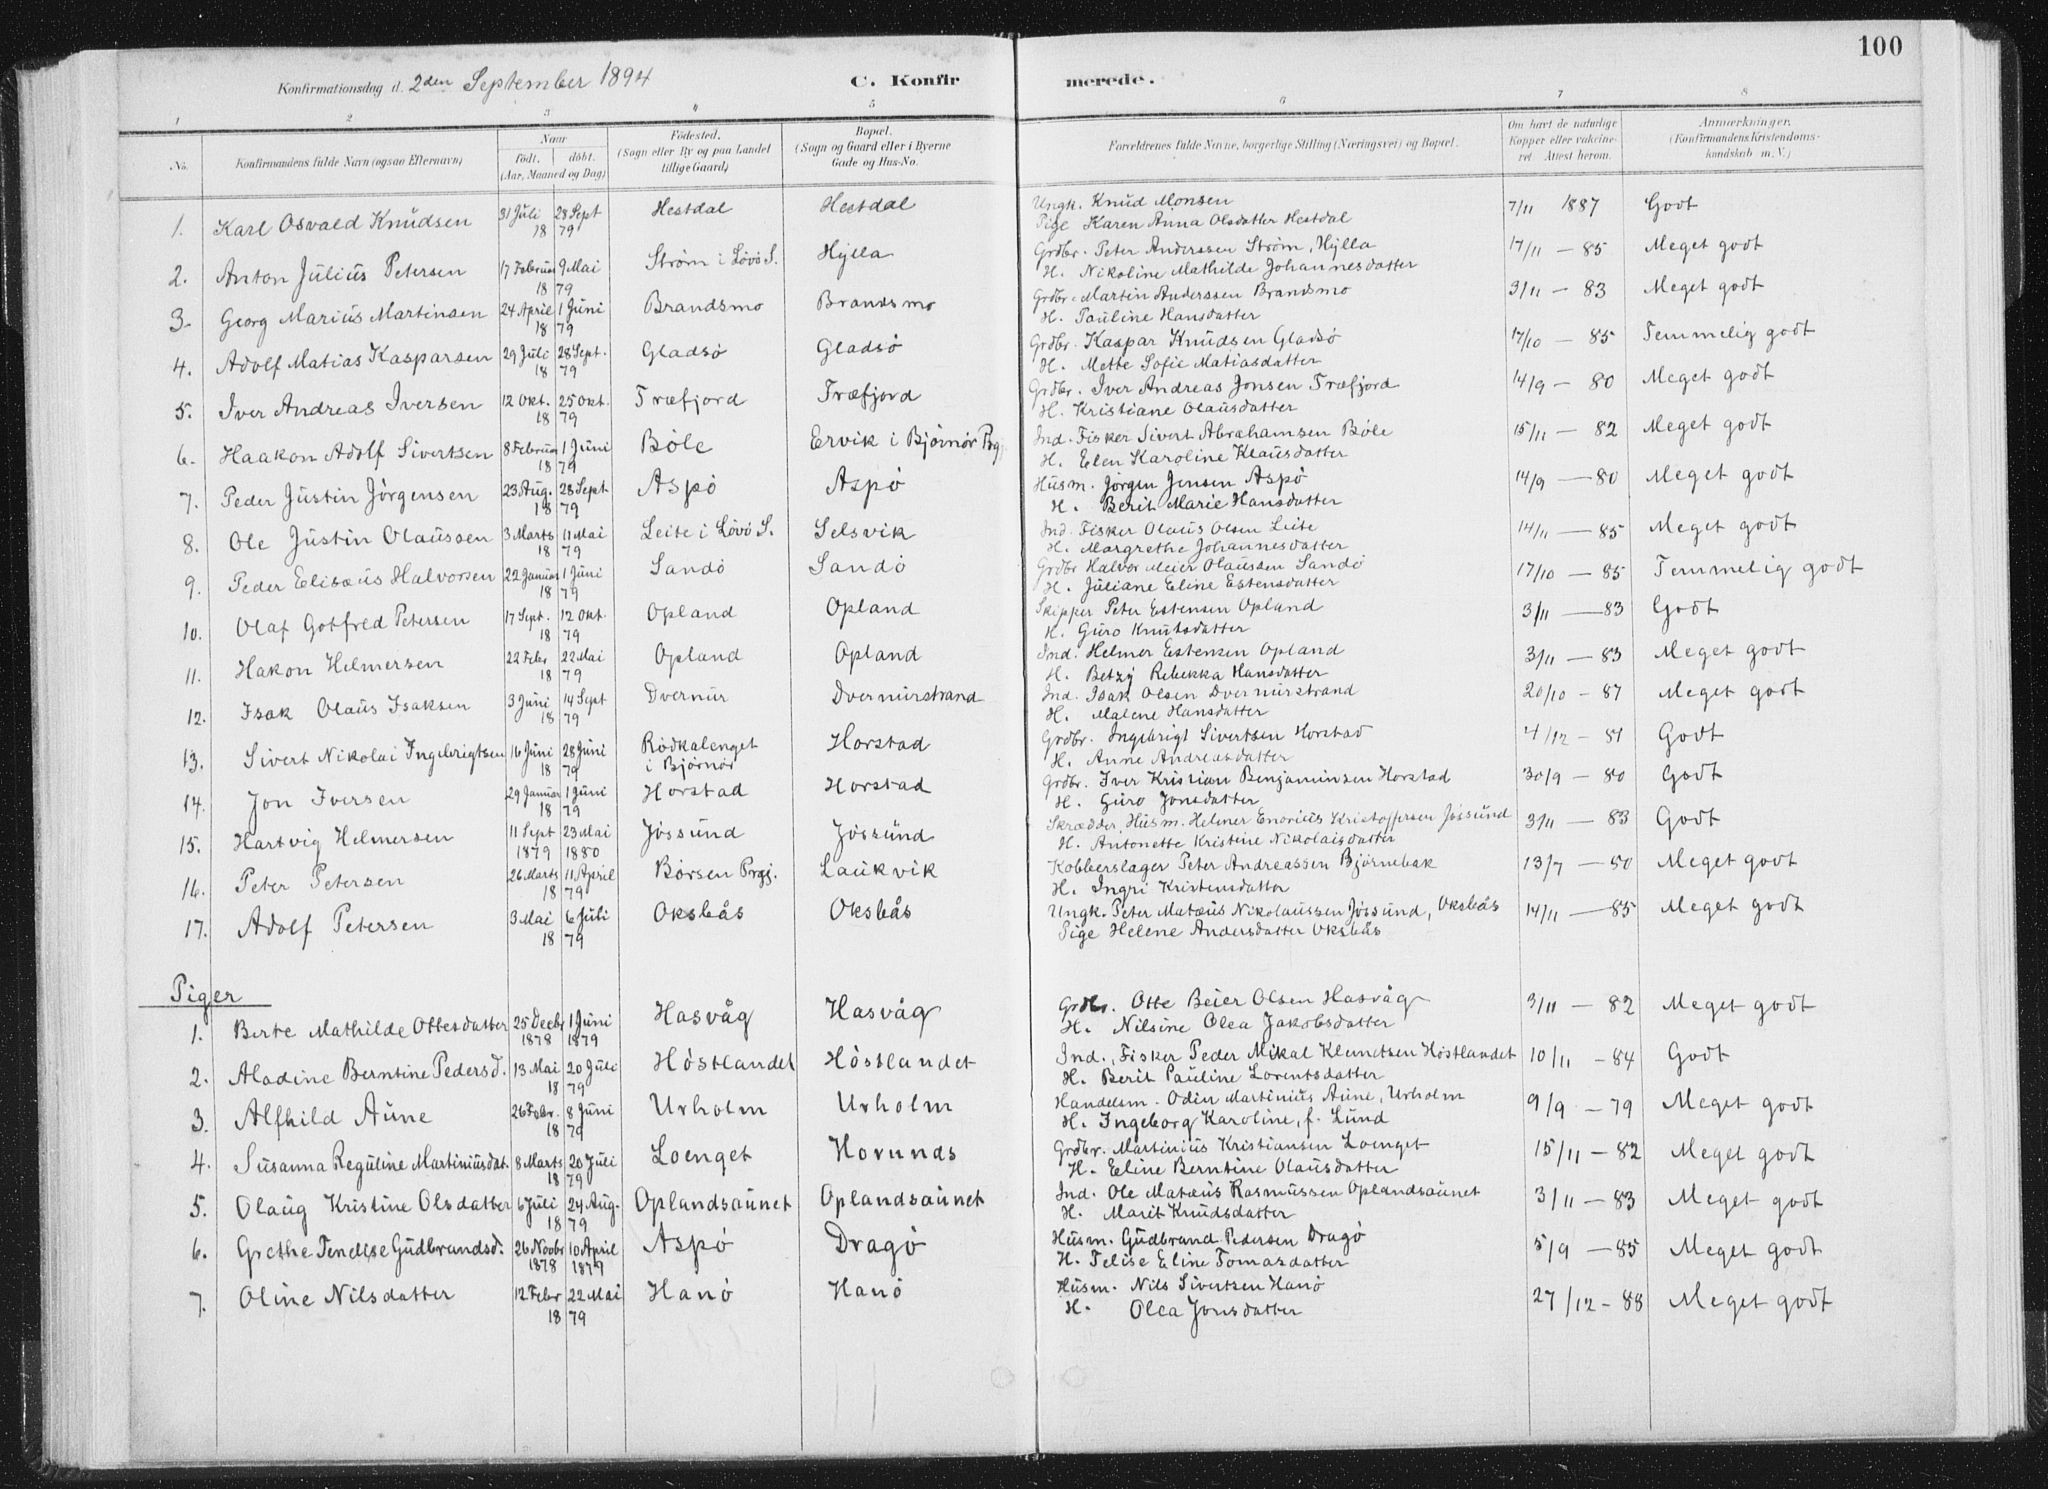 100
Konfirmationsdag d. 2den September 1894 C. Konfirmerede.
1 2 3 4 5 6 7 8
No. Konfirmandens fulde Navn (ogsaa Efternavn) Naar født. døbt. (Aar, Maaned og Dag) Fødested. (Sogn eller By og paa Landet tillige Gaard) Bopæl. (Sogn og Gaard eller i Byerne Gade og Hus-No. Forældrenes fulde Navne, borgerlige Stilling (Næringsvei) og Bopæl. Om havt de naturlige Kopper eller vakcineret. Attest herom. Anmærkninger. (Konfirmandens Kristendomskundskab m. V.)
1. Karl Osvald Knudsen 31 Juli 28 Sept 1879 Hestdal Hestdal Ungk. Knud Monsen 7/11 1887 Godt
Pige Karen Anna Olsdatter Hestdal
2. Anton Julius Petersen 17 Februar 9 Mai 1879 Strøm i Løvø S. Hylla Grdbr. Peter Anderssen Strøm, Hylla 17/11 — 85 Meget godt
H. Nikoline Mathilde Johannesdatter
3. Georg Marius Martinsen 24 April 1 Juni 1879 Brandsmo Brandsmo Grdbr. Martin Anderssen Brandsmo 3/11 — 83 Meget godt
H. Pauline Hansdatter
4. Adolf Matias Kasparsen 29 Juli 28 Sept. 1879 Gladsø Gladsø Grdbr. Kaspar Knudsen Gladsø 17/10 — 85 Temmelig godt
H. Mette Sofie Matiasdatter
5. Iver Andreas Iversen 12 Okt. 25 Okt. 1879 Træfjord Træfjord Grdbr. Iver Andreas Jonsen Træfjord 14/9 — 80 Meget godt
H. Kristiane Olausdatter
6. Haakon Adolf Sivertsen 8 Februar 1 Juni 1879 Bøle Ervik i Bjørnør Prg. Ind. Fisker Sivert Abrahamsen Bøle 15/11 — 82 Meget godt
H. Elen Karoline Klausdatter
7. Peder Justin Jørgensen 23 Aug. 28 Sept 1879 Aspø Aspø Husm. Jørgen Jensen Aspø 14/9 — 80 Meget godt
H. Berit Marie Hansdatter
8. Ole Justin Olaussen 3 Marts 11 Mai 1879 Leite i Løvø S. Selsvik Ind. Fisker Olaus Olsen Leite 14/11 — 85 Meget godt
H. Margrethe Johannesdatter
9. Peder Elisæus Halvorsen 22 Januar 1 Juni 1879 Sandø Sandø Grdbr Halvor Meier Olaussen Sandø 17/10 — 85 Temmelig godt
H. Juliane Eline Estensdatter
10. Olaf Gotfred Petersen 17 Sept. 12 Okt. 1879 Opland Opland Skipper Peter Estensen Opland 3/11 — 83 Godt
H. Guro Knutsdatter
11. Hakon Helmersen 22 Febr 22 Mai 1879 Opland Opland Ind. Helmer Estensen Opland 3/11 — 83 Meget godt
H. Betzy Rebekka Hansdatter
12. Isak Olaus Isaksen 3 Juni 14 Sept 1879 Dvernur Dvernurstrand Ind. Isak Olsen Dvernurstrand 20/10 — 87 Meget godt
H. Malene Hansdatter
13. Sivert Nikolai Ingebrigtsen 16 Juni 28 Juni 1879 Rødkalenget i Bjørnør Horstad Grdbr. Ingebrigt Sivertsen Horstad 4/12 — 81 Godt
H. Anne Andreasdatter
14. Jon Iversen 29 Januar 1 Juni 1879 Horstad Horstad Grdbr. Iver Kristian Benjaminsen Horstad 30/9 — 80 Godt
H. Guro Jonsdatter
15. Hartvig Helmersen 11 Sept 1879 23 Mai 1880 Jøssund Jøssund Skrædder, Husm. Helmer Enorius Kristoffersen Jøssund 3/11 — 83 Godt
H. Antonette Kristine Nikolaisdatter
16. Peter Petersen 26 Marts 11 April 1879 Børsen Prgj. Laukvik Kobberslager Peter Andreassen Bjørnebak 13/7 — 80 Meget godt
H. Ingri Kristensdatter
17. Adolf Petersen 3 Mai 6 Juli 1879 Oksbås Oksbås Ungk. Peter Matæus Nikolaussen Jøssund, Oksbås 14/11 — 85 Meget godt
Pige Helene Andersdatter Oksbås
Piger
1. Berte Mathilde Ottesdatter 25 Decbr 1878 1 Juni 1879 Hasvåg Hasvåg Grdbr. Otte Beier Olsen Hasvåg 3/11 — 82 Meget godt
H. Nilsine Olea Jakobsdatter
2. Aladine Berntine Pedersd. 13 Mai 20 Juli 1879 Høstlandet Høstlandet Ind., Fisker Peder Mikal Klemetsen Høstlandet 10/11 — 84 Godt
H. Berit Pauline Lorentsdatter
3. Alfhild Aune 26 Febr. 8 Juni 1879 Urholm Urholm Handelsm. Odin Martinius Aune, Urholm 9/9 — 79 Meget godt
H. Ingeborg Karoline, f. Lund
4. Susanna Reguline Martiniusdat. 8 Marts 20 Juli 1879 Loenget Horunds Grdbr. Martinius Kristiansen Loenget 15/11 — 82 Meget godt
H. Eline Berntine Olausdatter
5. Olaug Kristine Olsdatter 6 Juli 24 Aug. 1879 Oplandsaunet Oplandsaunet Ind. Ole Matæus Rasmussen Oplandsaunet 3/11 — 83 Meget godt
H. Marit Knudsdatter
6. Grethe Tendise Gudbrandsd. 26 Novbr 1878 10 April 1879 Aspø Dragø Husm. Gudbrand Pedersen Dragø 5/9 — 85 Meget godt
H. Felise Eline Tomasdatter
7. Oline Nilsdatter 12 Febr 22 Mai 1879 Hanø Hanø Husm. Nils Sivertsen Hanø 27/12 — 88 Meget godt
H. Olea Jonsdatter